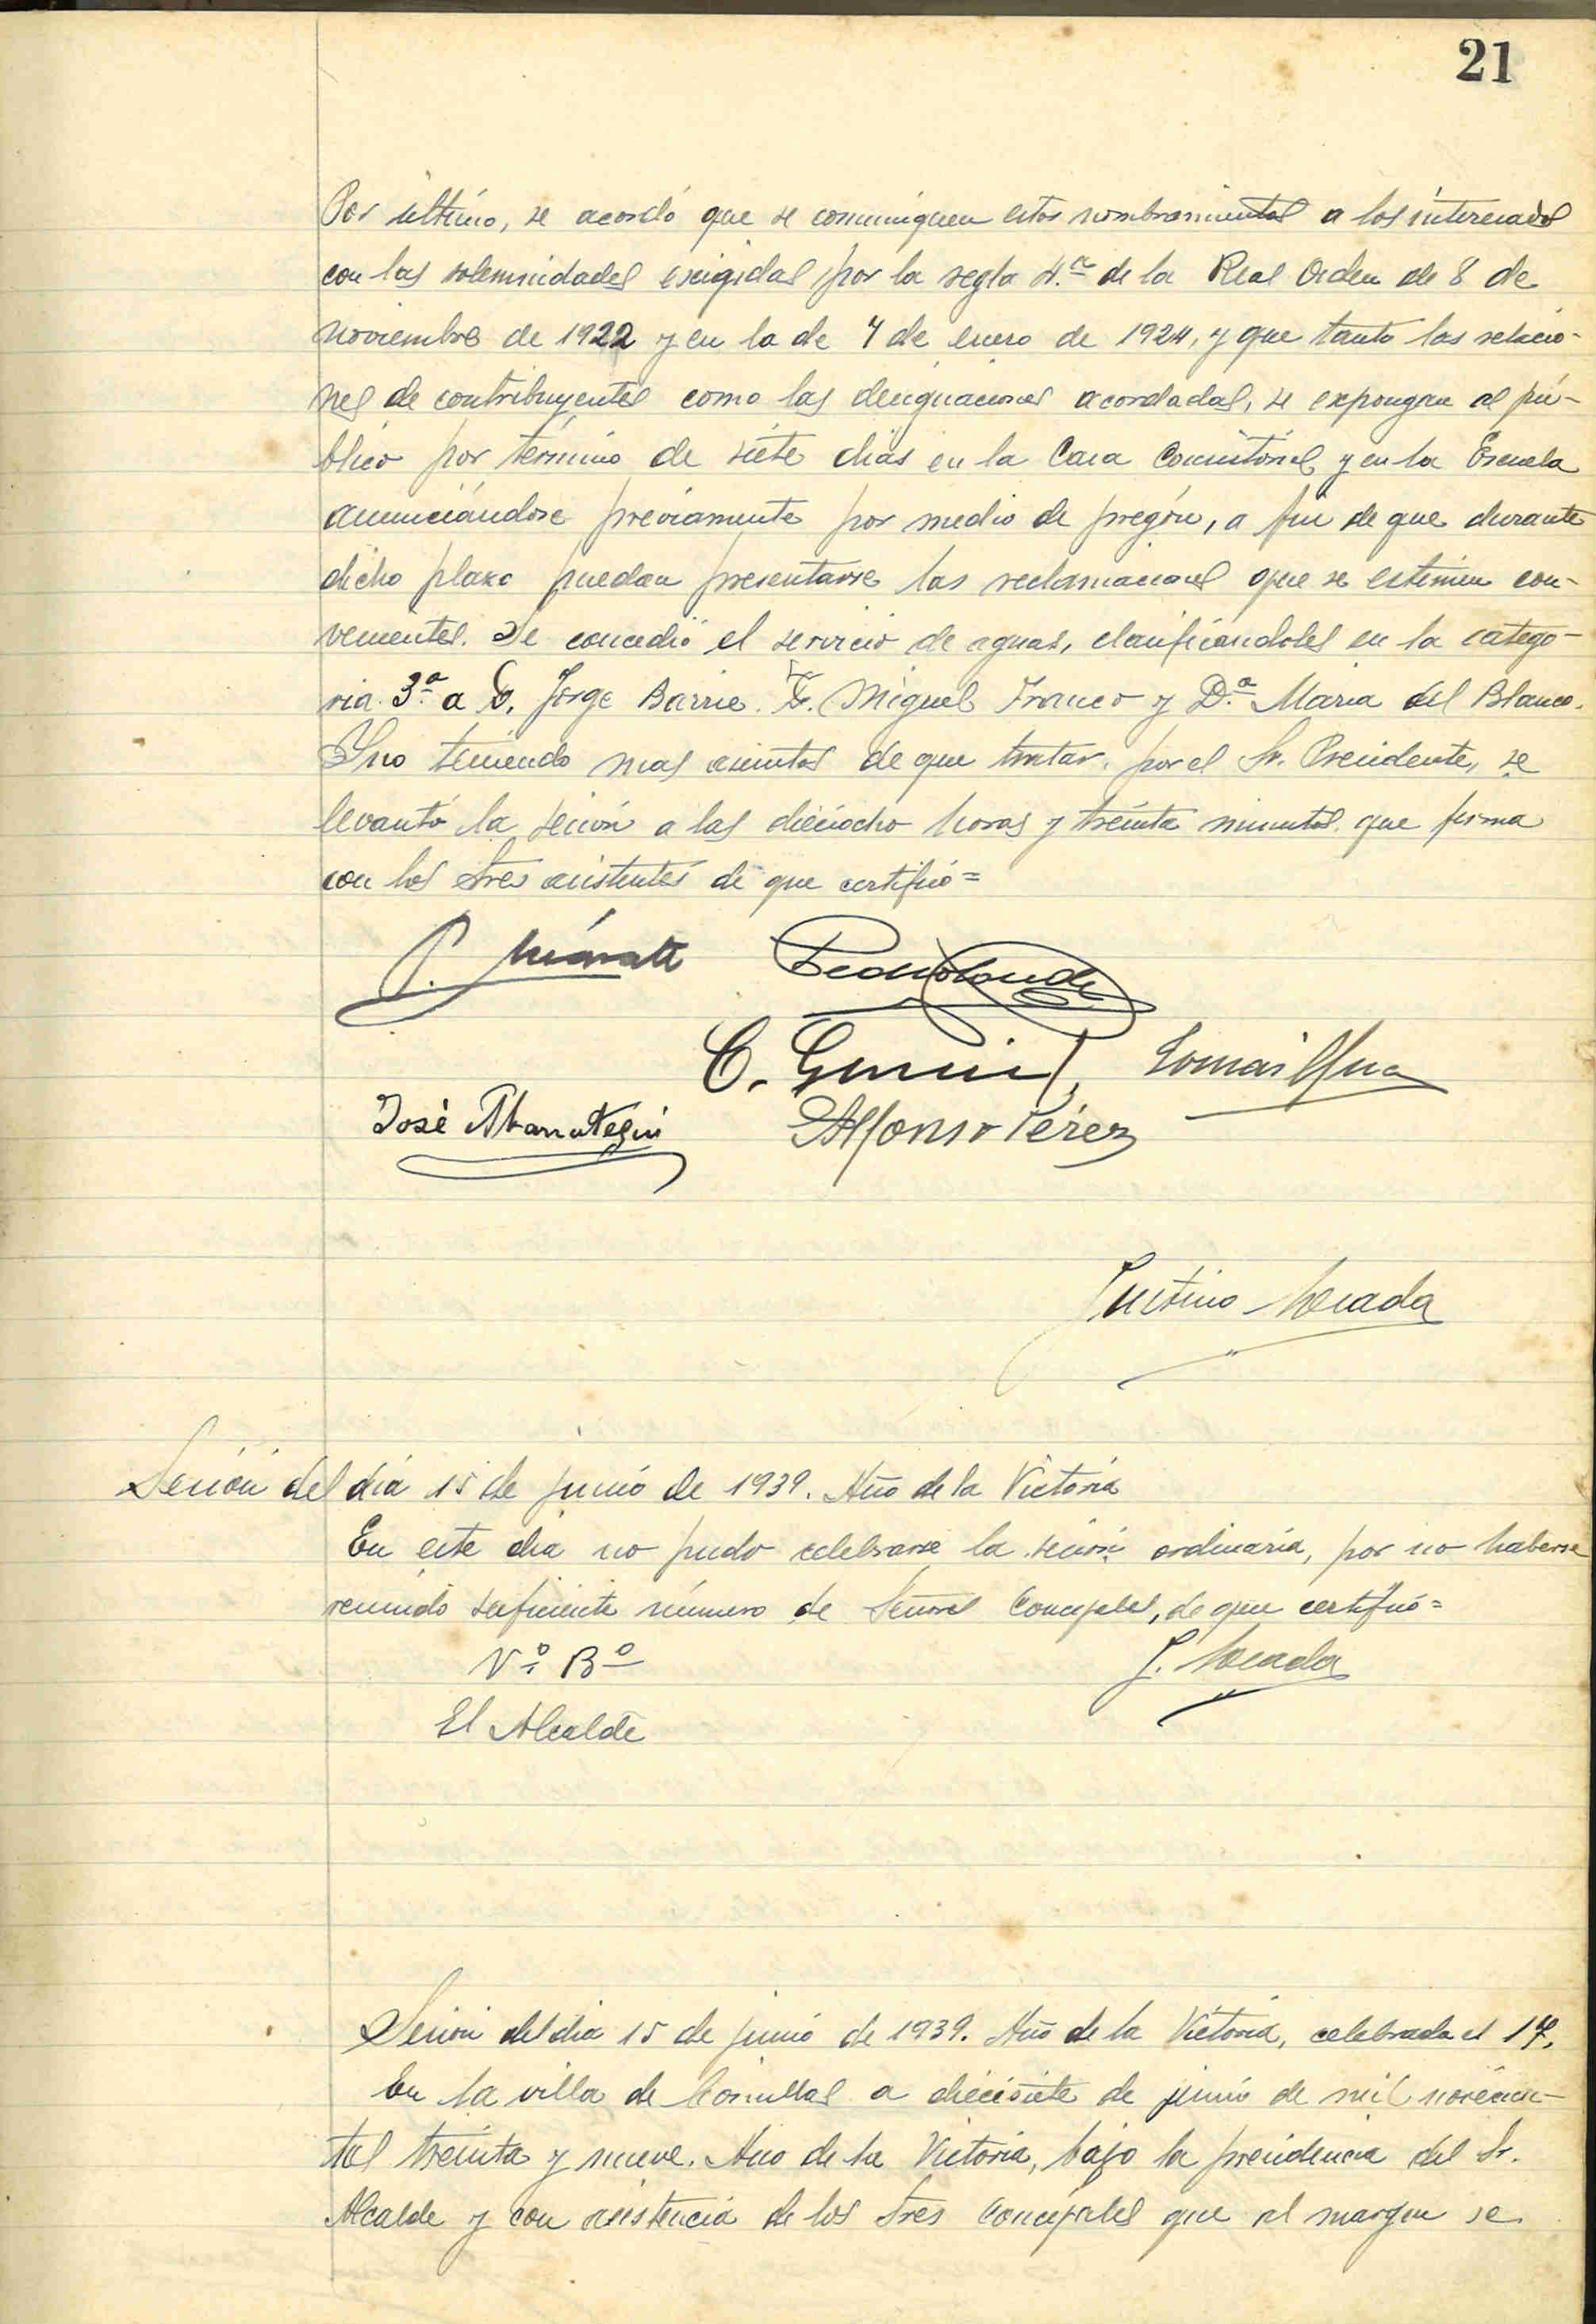 21
Por último, se acordó que se comuniquen estos nombramientos a los interesados
con las solemnidades exigidas por la regla 4.ª de la Real Orden de 8 de
noviembre de 1922 y en la de 7 de enero de 1924, y que tanto las relacio-
nes de contribuyentes como las designaciones acordadas, se expongan al pú-
blico por término de siete dias en la Casa Consistorial y en la Escuela
anunciándose previamente por medio de pregón, a fin de que durante
dicho plazo puedan presentarse las reclamaciones que se estimen con-
venientes. Se concedió el servicio de aguas, clasificandoles en la catego-
ria 3.ª a D. Jorge Barrie. D. Miguel Franco y D.ª Maria del Blanco.
Y no teniendo mas asuntos de que tratar, por el Sr. Presidente, se
levantó la sesión a las dieciocho horas y treinta minutos que firma
con los Sres asistentes de que certifico =
P.
C.
José Abarrategui Alfonso Pérez
Justino
Sesión del dia 15 de junio de 1939. Año de la Victoria
En este dia no pudo celebrarse la sesión ordinaria, por no haberse
reunido suficiente número de Señores Concejales, de que certifico =
Vº Bº J.
El Alcalde
Sesion del dia 15 de junio de 1939. Año de la Victoria, celebrada el 17.
En la villa de Comillas a diecisiete de junio de mil novecien-
tos treinta y nueve. Año de la Victoria, bajo la presidencia del Sr.
Alcalde y con asistencia de los Sres Concejales que al margen se